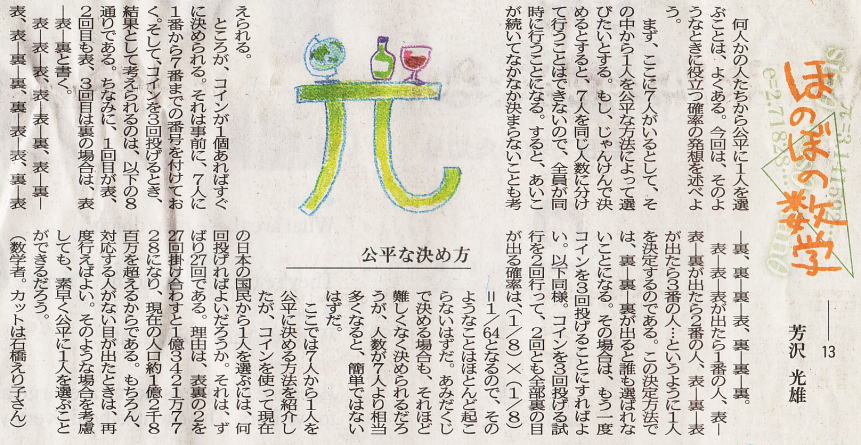 ほのぼの数学
―13
芳沢 光雄
公平な決め方
何人かの人たちから公平に1人を選
ぶことは、よくある。今回は、そのよ
うなときに役立つ確率の発想を述べよ
う。
まず、ここに7人がいるとして、そ
の中から1人を公平な方法によって選
びたいとする。もし、じゃんけんで決
めるとすると、7人を同じ人数に分け
て行うことはできないので、全員が同
時に行うことになる。すると、あいこ
が続いてなかなか決まらないことも考
えられる。
ところが、コインが1個あればすぐ
に決められる。それは事前に、7人に
1番から7番までの番号を付けてお
く。そして、コインを3回投げるとき、
結果として考えられるのは、以下の8
通りである。ちなみに、1回目が表、
2回目も表、3回目は裏の場合は、表
―表―裏と書く。
表―表―表、表―表―裏、表―裏―
表、表―裏―裏、裏―表―表、裏―表
―裏、裏―裏―表、裏―裏―裏。
表―表―表が出たら1番の人、表―
表―裏が出たら2番の人、表―裏―表
が出たら3番の人…というように1人
を決定するのである。この決定方法で
は、裏―裏―裏が出ると誰も選ばれな
いことになる。その場合は、もう一度
コインを3回投げることにすればよ
い。以下同様。コインを3回投げる試
行を2回行って、2回とも全部裏の目
が出る確率は、(1/8)×(1/8)
=1/64となるので、その
ようなことはほとんど起こ
らないはずだ。あみだくじ
で決める場合も、それほど
難しくなく決められるだろ
うが、人数が7人より相当
多くなると、簡単ではない
はずだ。
ここでは7人から1人を
公平に決める方法を紹介し
たが、コインを使って現在
の日本の国民から1人を選ぶには、何
回投げればよいだろうか。それは、ず
ばり27回である。理由は、表裏の2を
27回掛け合わすと1億3421万77
28になり、現在の人口約1億2千8
百万を超えるからである。もちろん、
対応する人がない目が出たときは、再
度行えばよい。そのような場合を考慮
しても、素早く公平に1人を選ぶこと
ができるだろう。
(数学者。カットは石橋えり子さん)